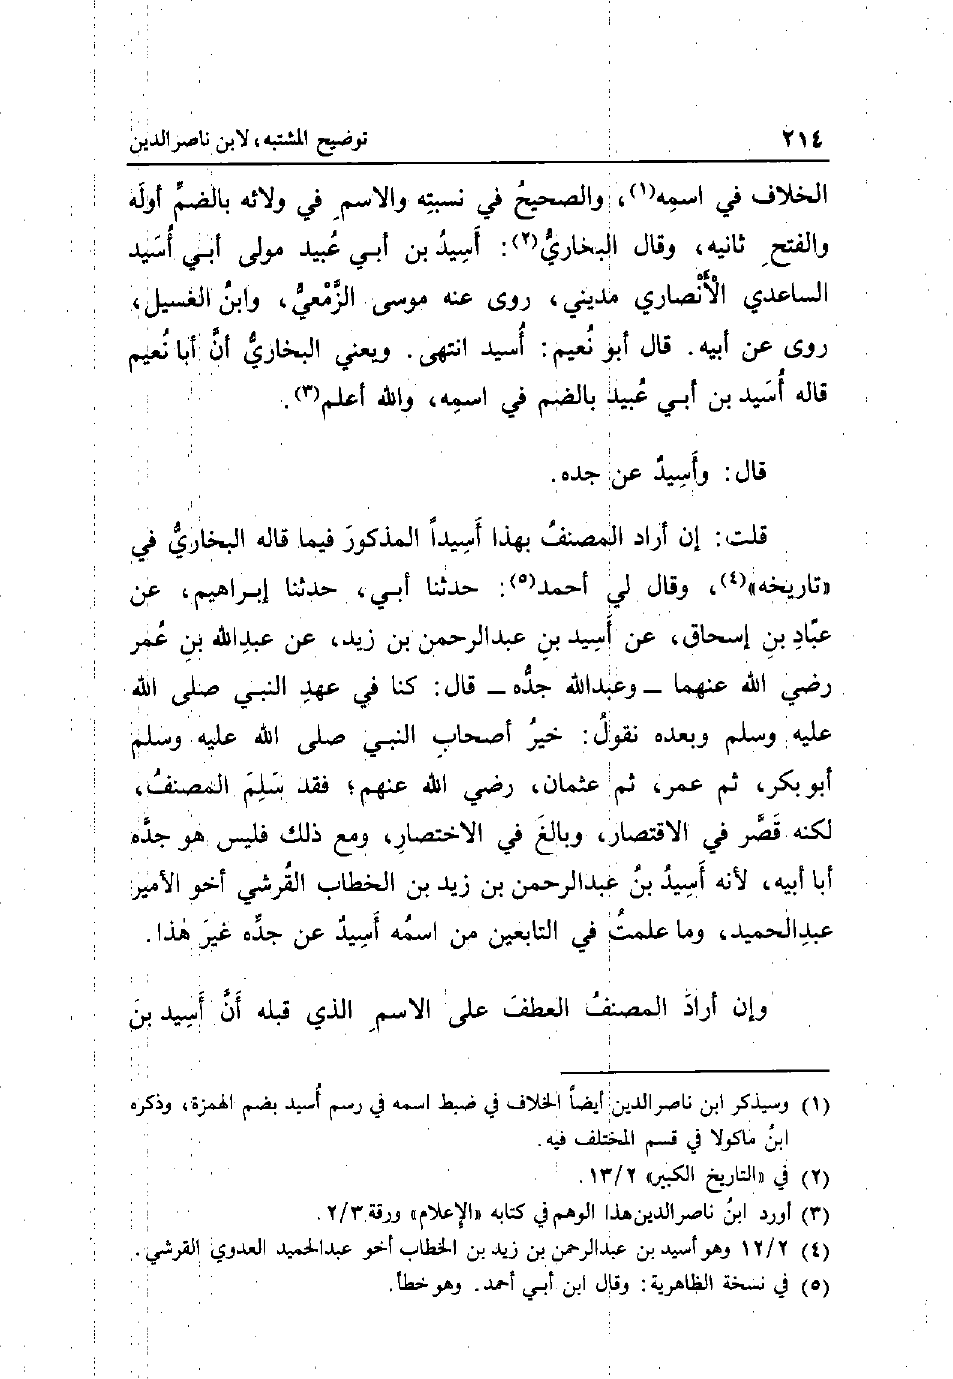 ٢١٤ توضيح المشتبه، لابن ناصرالدين
الخلاف في اسمِه(١)، والصحيحُ في نسبتِه والاسمِ في ولائه بالضمِّ أولَه
والفتحِ ثانيه، وقال البخاريُّ(٢): أَسِيدُ بن أبي عُبيد مولى أبي أُسَيد
الساعدي الأَنْصاري مديني، روى عنه موسى الزَّمْعيُّ، وابنُ الغسيل،
روى عن أبيه. قال أبو نُعيم: أُسيد انتهى. ويعني البخاريُّ أنَّ أبا نُعيم
قاله أُسَيد بن أبي عُبيد بالضم في اسمِه، والله أعلم(٣).
قال: وأَسِيدٌ عن جده.
قلت: إن أراد المصنفُ بهذا أَسِيداً المذكورَ فيما قاله البخاريُّ في
«تاريخه»(٤)، وقال لي أحمد(٥): حدثنا أبي، حدثنا إبراهيم، عن
عبّادِ بنِ إسحاق، عن أَسِيد بنِ عبدالرحمن بن زيد، عن عبدِالله بنِ عُمر
رضي الله عنهما ــ وعبدالله جدُّه ــ قال: كنا في عهدِ النبي صلى الله
عليه وسلم وبعده نقولُ: خيرُ أصحابِ النبي صلى الله عليه وسلم
أبو بكر، ثم عمر، ثم عثمان، رضي الله عنهم؛ فقد سَلِمَ المصنفُ،
لكنه قَصَّر في الاقتصار، وبالغَ في الاختصارِ، ومع ذلك فليس هو جدَّه
أبا أبيه، لأنه أَسِيدُ بنُ عبدالرحمن بن زيد بن الخطاب القُرشي أخو الأمير
عبدِالحميد، وما علمتُ في التابعين من اسمُه أَسِيدٌ عن جدِّه غيرَ هٰذا.
وإن أرادَ المصنفُ العطفَ على الاسمِ الذي قبله أنَّ أَسِيد بنَ
(١) وسيذكر ابن ناصرالدين أيضاً الخلاف في ضبط اسمه في رسم أُسيد بضم الهمزة، وذكره
ابنُ ماكولا في قسم المختلف فيه.
(٢) في «التاريخ الكبير» ١٣/٢.
(٣) أورد ابنُ ناصرالدين هذا الوهم في كتابه «الإعلام» ورقة ٢/٣.
(٤) ١٢/٢ وهو أسيد بن عبدالرحمن بن زيد بن الخطاب أخو عبدالحميد العدوي القرشي.
(٥) في نسخة الظاهرية: وقال ابن أبي أحمد. وهو خطأ.